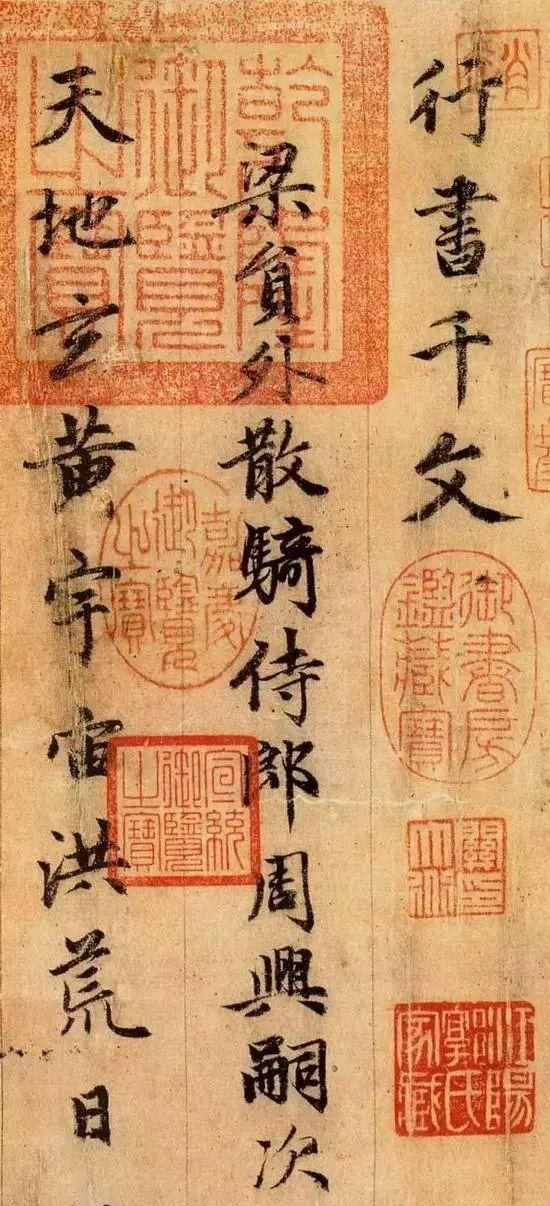 行書千文
梁員外散騎侍郎周興嗣次
天地玄黄宇宙洪荒日
乾隆御覽之寶
嘉慶御覽之寶
宣統御覽之寶
御書房鑑藏寶